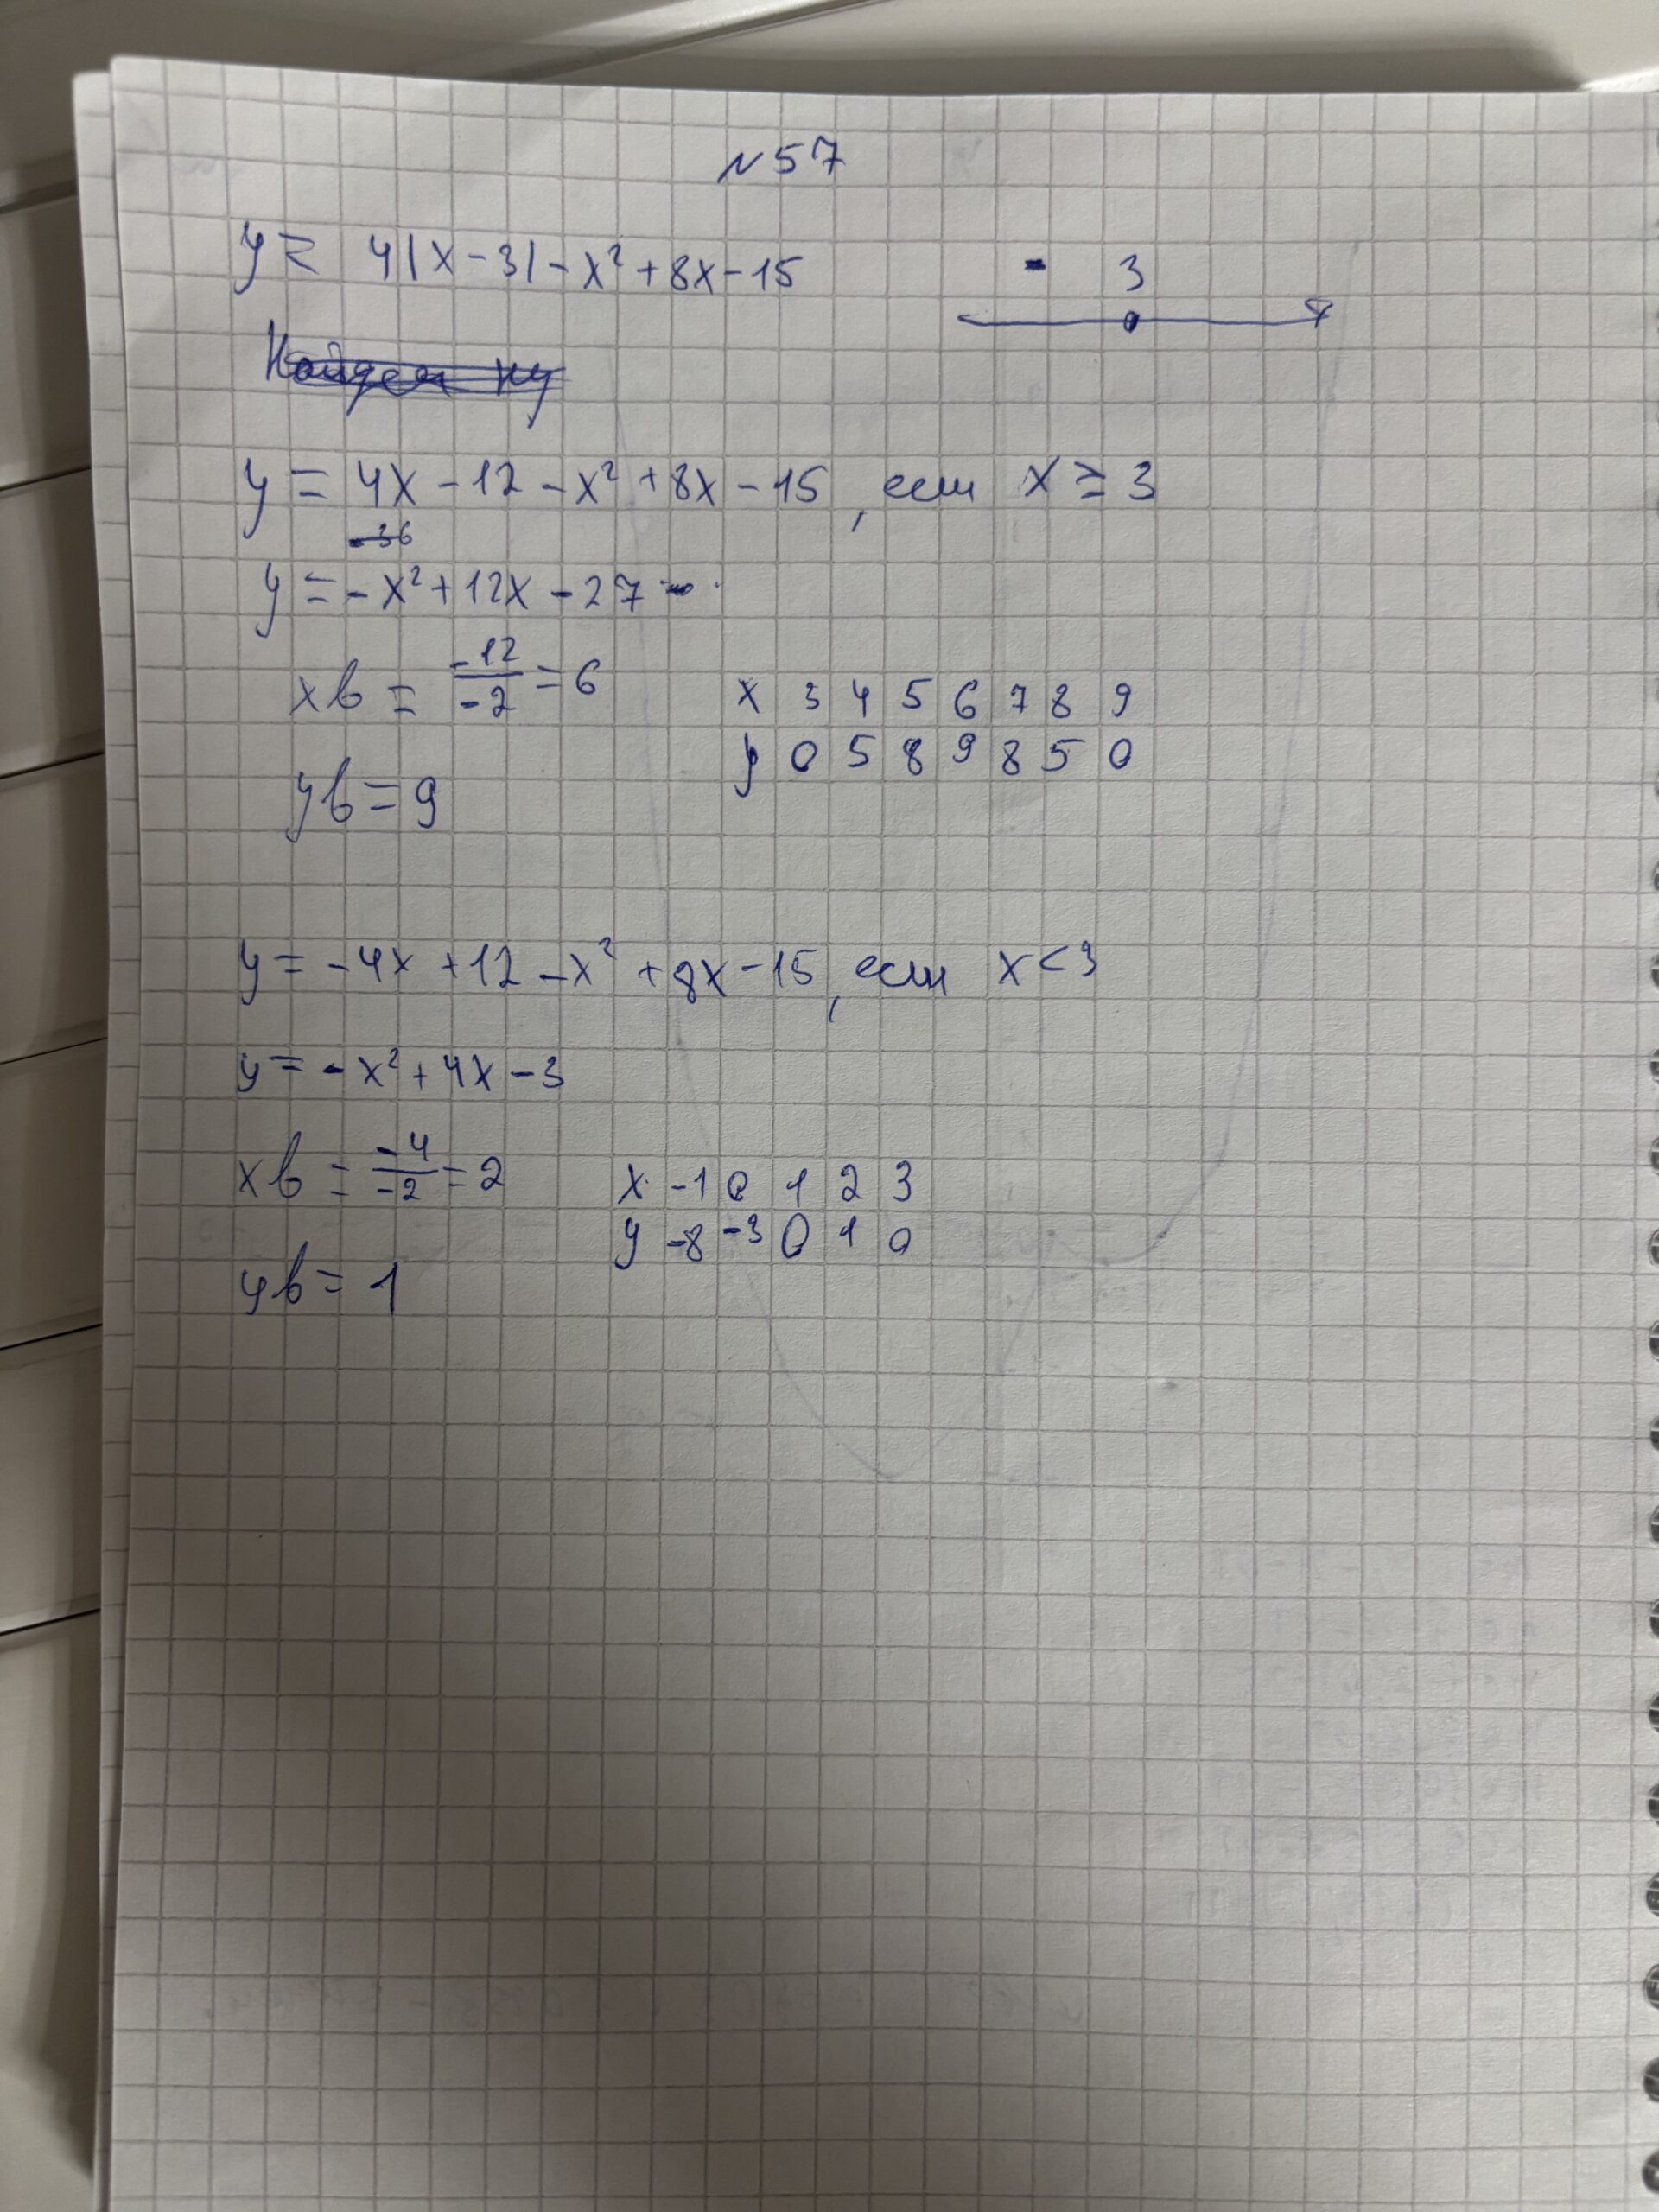 №57
y = 4|x-3| - x² + 8x - 15
3
Найдем ну
y = 4x - 12 - x² + 8x - 15, если x ≥ 3
-36
y = - x² + 12x - 27
xв = -12/-2 = 6
x 3 4 5 6 7 8 9
y 0 5 8 9 8 5 0
yв = 9
y = -4x + 12 - x² + 8x - 15, если x < 3
y = - x² + 4x - 3
xв = -4/-2 = 2
x -1 0 1 2 3
y -8 -3 0 1 0
yв = 1